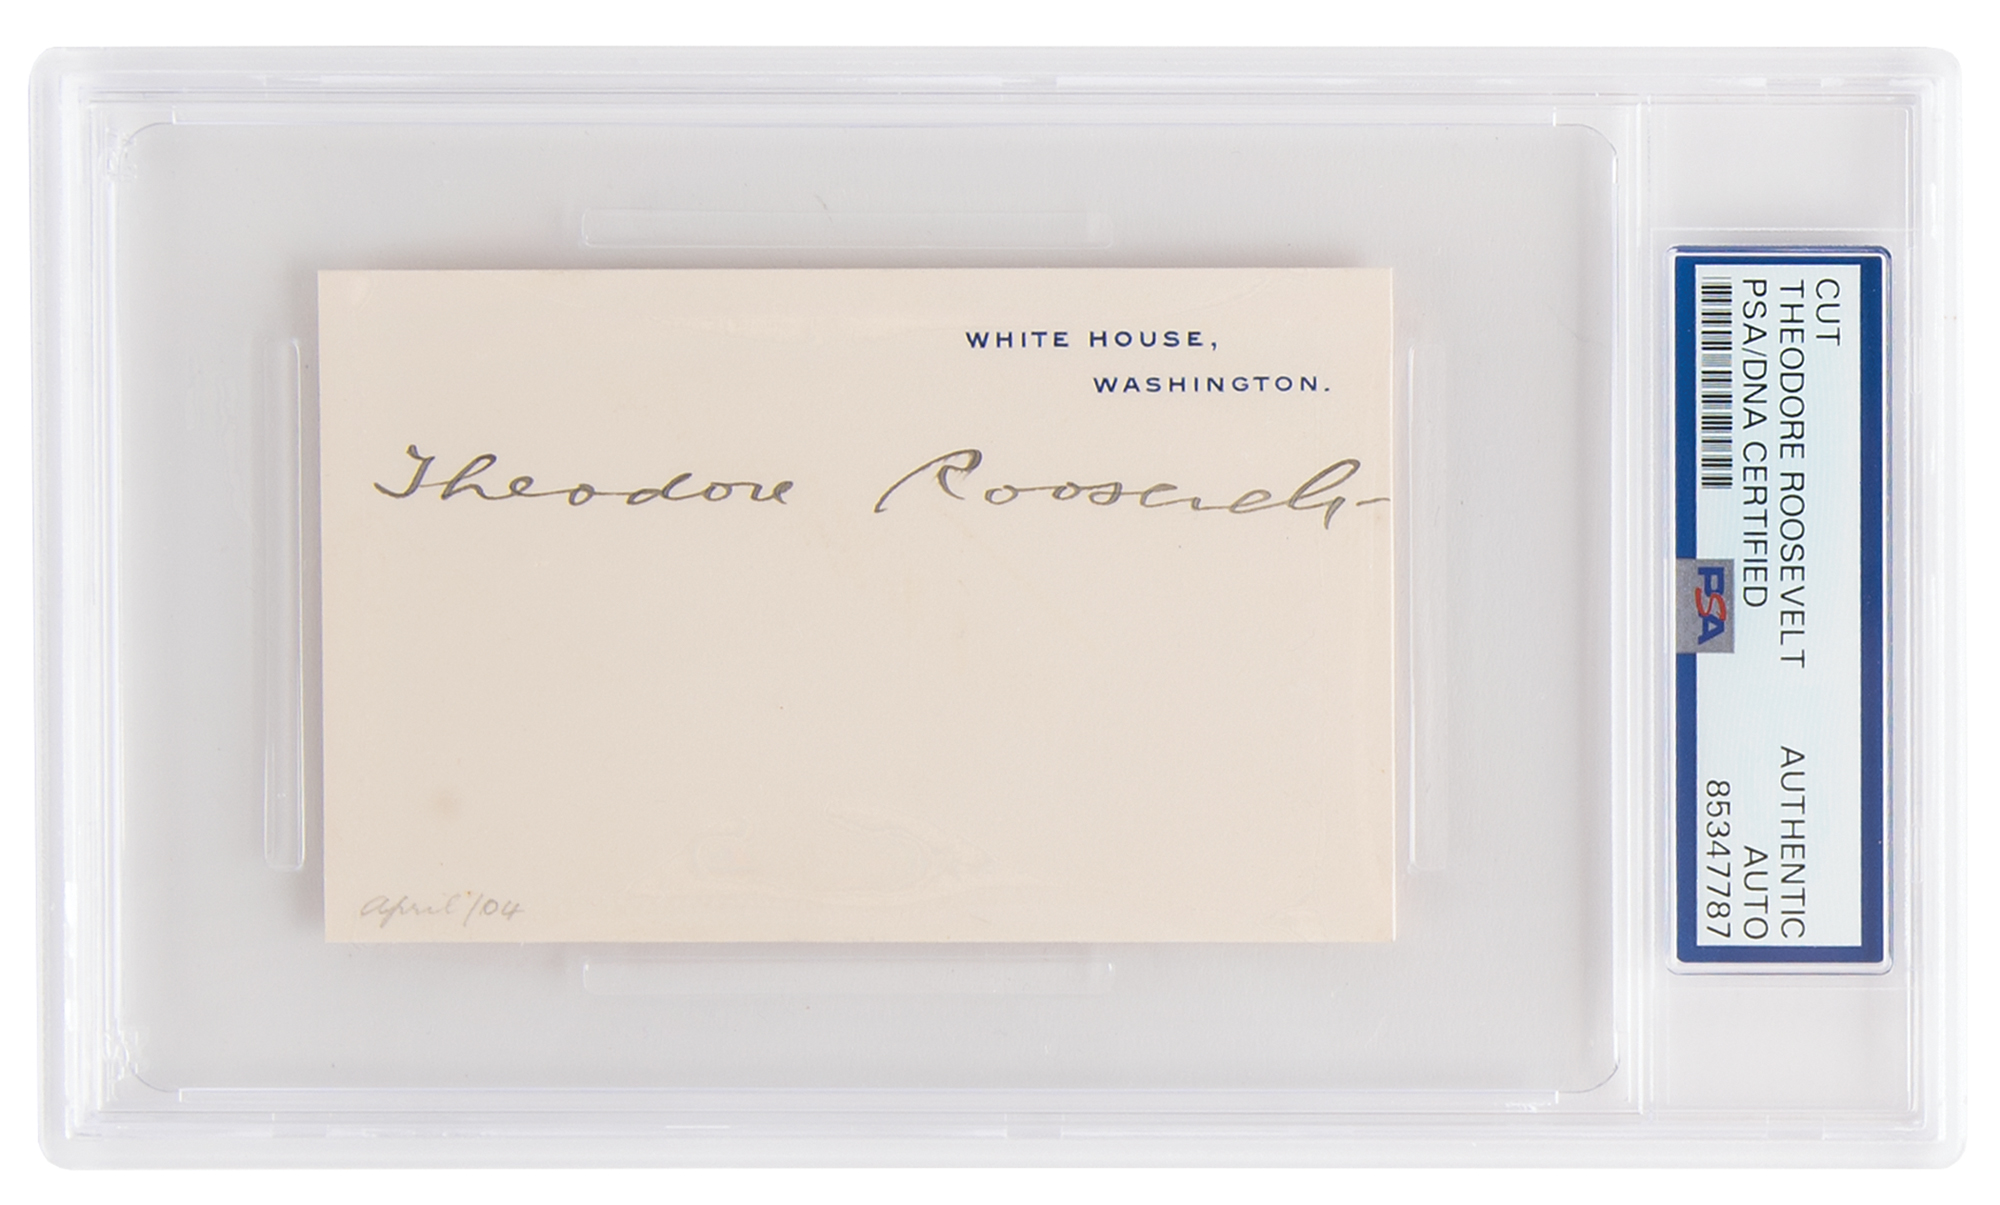 WHITE HOUSE,
WASHINGTON.
Theodore Roosevelt
April/04
CUT
THEODORE ROOSEVELT AUTHENTIC
PSA/DNA CERTIFIED AUTO
85347787
PSA